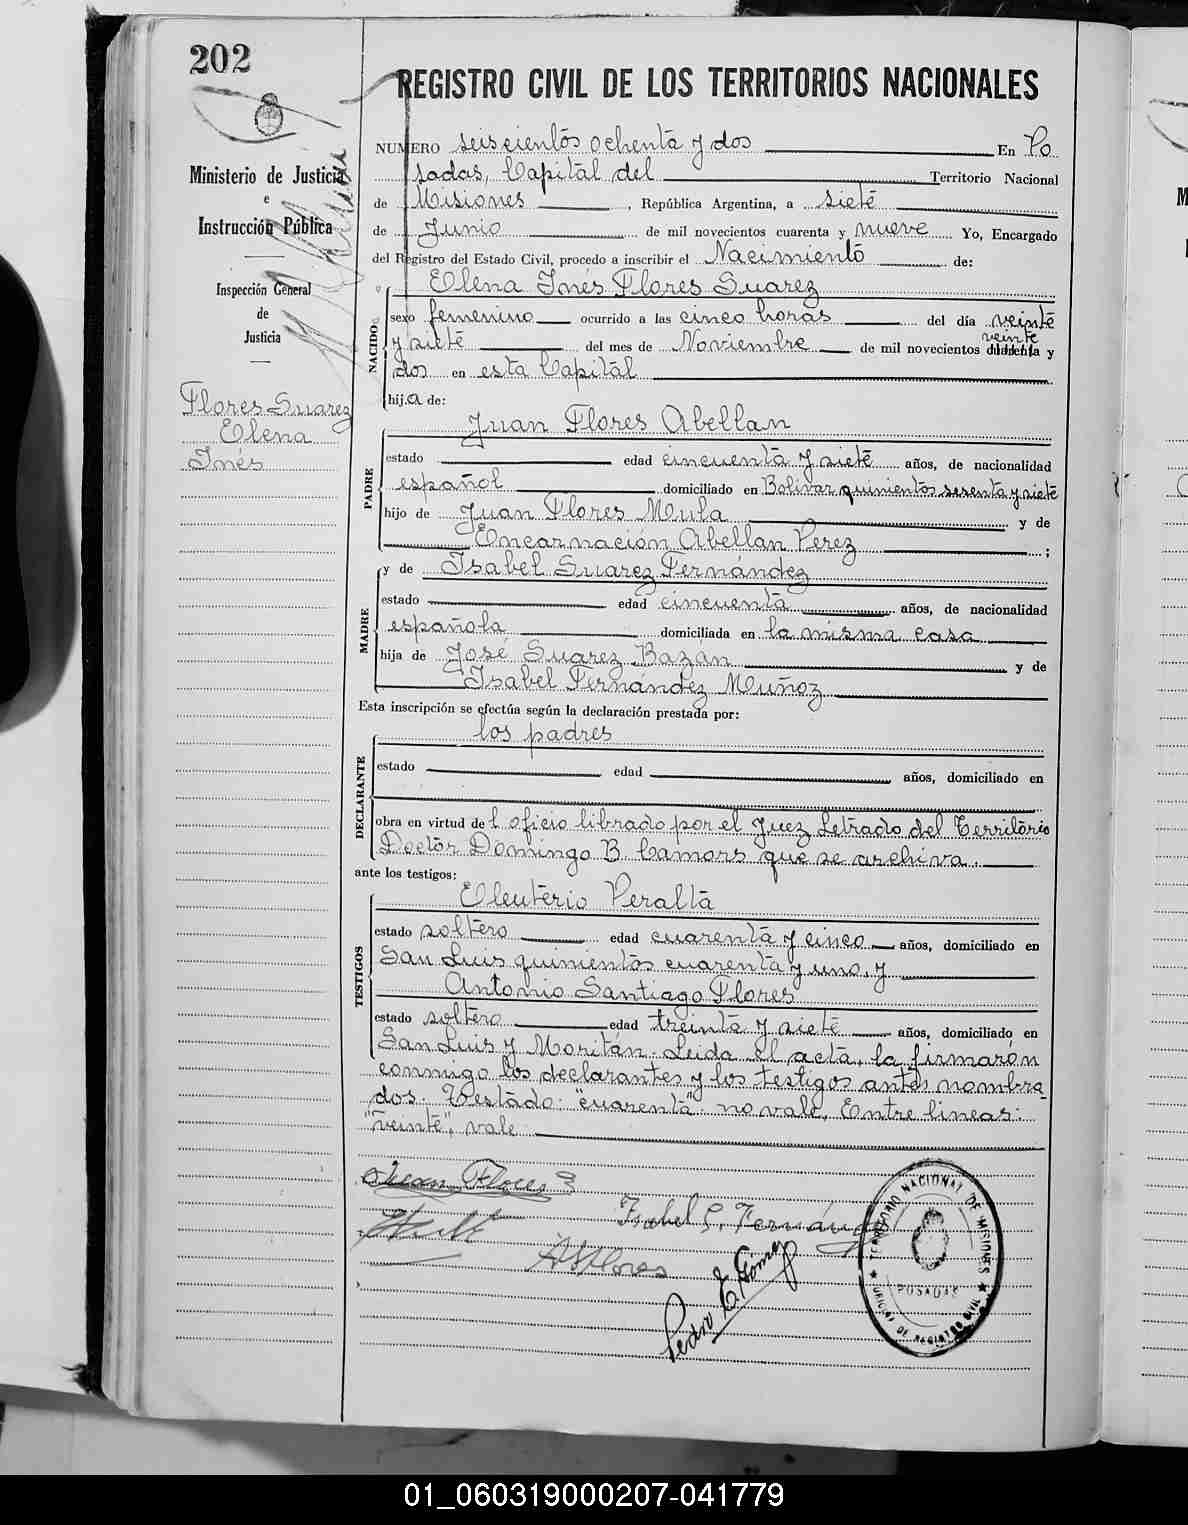 202
REGISTRO CIVIL DE LOS TERRITORIOS NACIONALES
Ministerio de Justicia
e
Instrucción Pública
Inspección General
de
Justicia
Flores Suarez
Elena
Inés
NUMERO seiscientos ochenta y dos En Po
sadas, Capital del Territorio Nacional
de Misiones, República Argentina, a siete
de Junio de mil novecientos cuarenta y nueve Yo, Encargado
del Registro del Estado Civil, procedo a inscribir el Nacimiento de:
NACIDO
Elena Inés Flores Suarez
sexo femenino ocurrido a las cinco horas del día veinte
veinte
y siete del mes de Noviembre de mil novecientos y
dos en esta Capital
hij.a de:
PADRE
Juan Flores Abellan
estado edad cincuenta y siete años, de nacionalidad
español domiciliado en Bolivar quinientos sesenta y siete
hijo de Juan Flores Mula y de
Encarnación Abellan Perez ;
MADRE
y de Isabel Suarez Fernández
estado edad cincuenta años, de nacionalidad
española domiciliada en la misma casa
hija de José Suarez Bazán y de
Isabel Fernández Muñoz
Esta inscripción se efectúa según la declaración prestada por:
DECLARANTE
los padres
estado edad años, domiciliado en
obra en virtud del oficio librado por el Juez Letrado del Territorio
Doctor Domingo B. Camors que se archiva.
ante los testigos:
TESTIGOS
Eleuterio Peralta
estado soltero edad cuarenta y cinco años, domiciliado en
San Luis quinientos cuarenta y uno, y
Antonio Santiago Flores
estado soltero edad treinta y siete años, domiciliado en
San Luis y Moritán. Leida el acta, la firmarón
conmigo los declarantes y los testigos antes nombra
dos. Testado: "cuarenta" no vale, Entre lineas:
"veinte", vale
Juan Flores
Isabel S. Fernández
ASFlores
Pedro E. Gómez
TERRITORIO NACIONAL DE MISIONES
POSADAS
OFICINA DE REGISTRO CIVIL
01_060319000207-041779